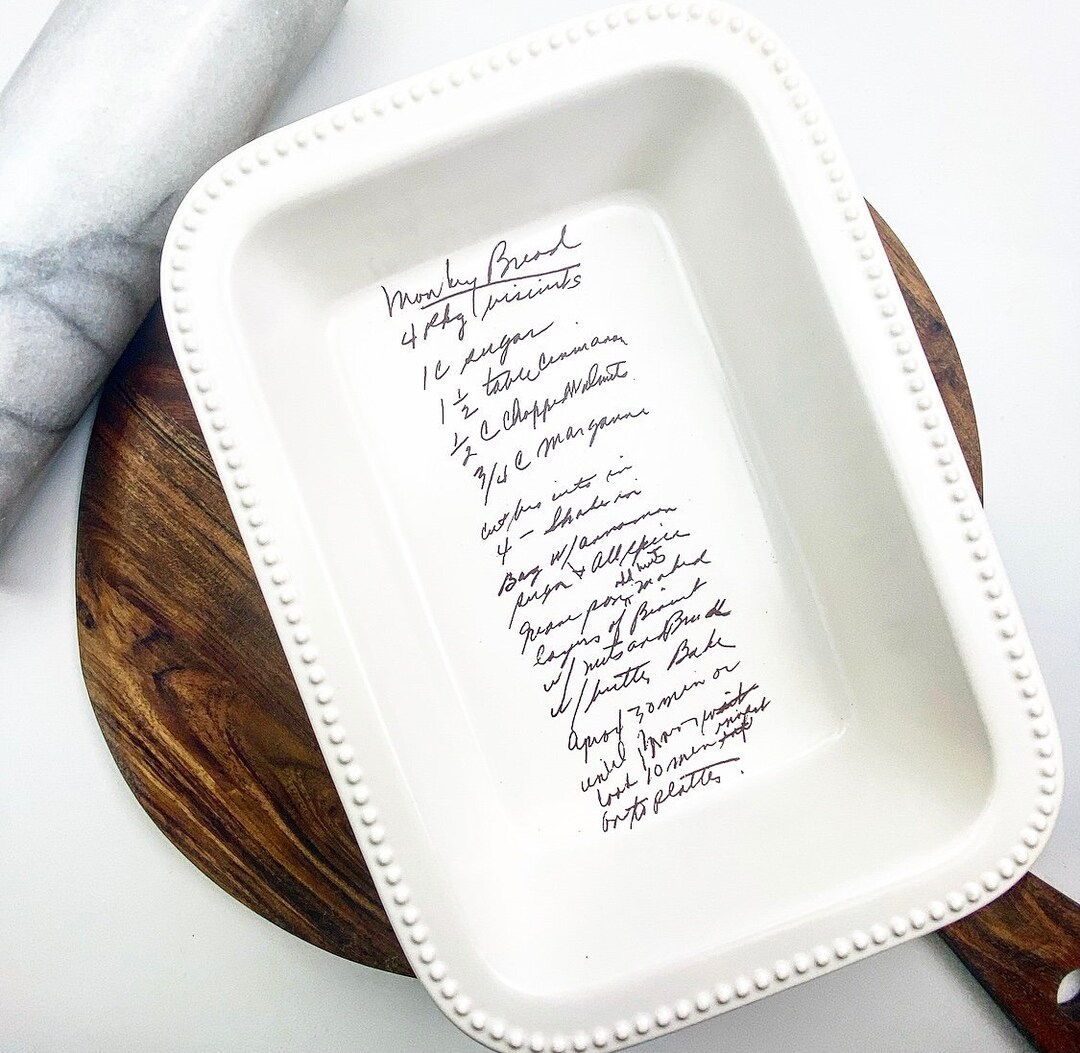 Monkey Bread
4 Pkg biscuits
1 C sugar
1 1/2 table Cinnamon
1/2 C Chopped Walnuts
3/4 C Margarine
cut biscuits in
4 - Shake in
Bag w/ cinnamon
sugar & Allspice
Grease pan add nuts
layers of Biscuit
w/ nuts and
w/ butter Bake
aprox 30 min or
until brown wait
10 min invert
onto platter.